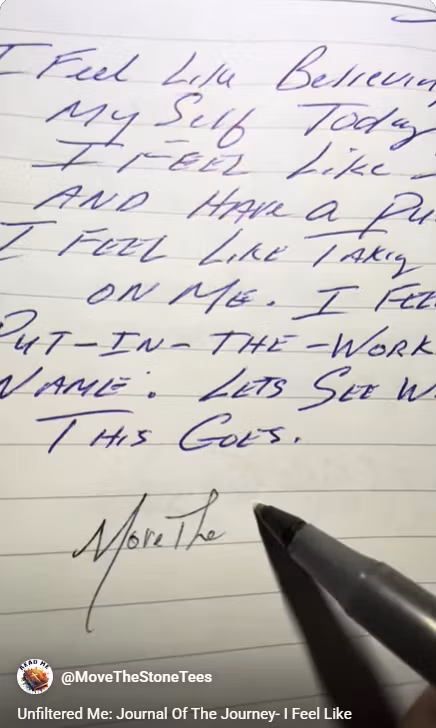 I Feel Like Believin
My Self Today
I FEEL Like
AND HAVE a Pu
I FEEL LIKE Taking
ON ME. I FEE
PUT-IN-THE-WORK
NAME. LETS SEE W
THIS GOES.
MoveThe
READ ME
@MoveTheStoneTees
Unfiltered Me: Journal Of The Journey- I Feel Like